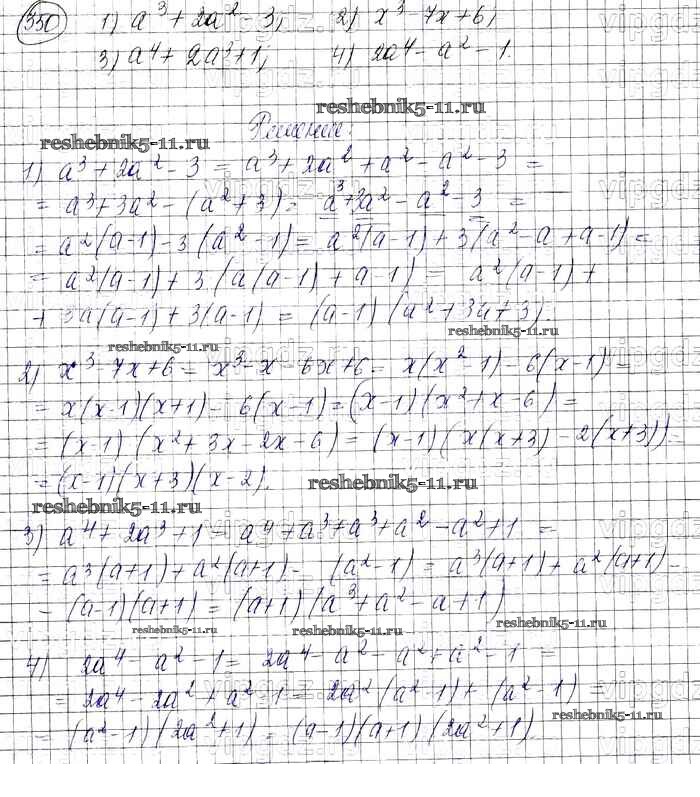 350 1) a³ + 2a² - 3; 2) x³ - 7x + 6;
3) a⁴ + 2a³ + 1; 4) 2a⁴ - a² - 1.
reshebnik5-11.ru
Решение:
reshebnik5-11.ru
1) a³ + 2a² - 3 = a³ + 2a² + a² - a² - 3 =
= a³ + 3a² - (a² + 3) = a³ + 3a² - a² - 3 =
= a²(a-1) - 3(a² - 1) = a²(a-1) + 3(a² - a + a - 1) =
= a²(a-1) + 3(a(a-1) + a-1) = a²(a-1) +
+ 3a(a-1) + 3(a-1) = (a-1)(a² + 3a + 3).
reshebnik5-11.ru
reshebnik5-11.ru
2) x³ - 7x + 6 = x³ - x - 6x + 6 = x(x² - 1) - 6(x-1) =
= x(x-1)(x+1) - 6(x-1) = (x-1)(x² + x - 6) =
= (x-1)(x² + 3x - 2x - 6) = (x-1)(x(x+3) - 2(x+3)) =
= (x-1)(x+3)(x-2).
reshebnik5-11.ru
reshebnik5-11.ru
3) a⁴ + 2a³ + 1 = a⁴ + a³ + a³ + a² - a² + 1 =
= a³(a+1) + a²(a+1) - (a² - 1) = a³(a+1) + a²(a+1) -
- (a-1)(a+1) = (a+1)(a³ + a² - a + 1)
reshebnik5-11.ru
reshebnik5-11.ru
reshebnik5-11.ru
4) 2a⁴ - a² - 1 = 2a⁴ - a² - a² + a² - 1 =
= 2a⁴ - 2a² + a² - 1 = 2a²(a² - 1) + (a² - 1) =
reshebnik5-11.ru
= (a² - 1)(2a² + 1) = (a-1)(a+1)(2a² + 1)